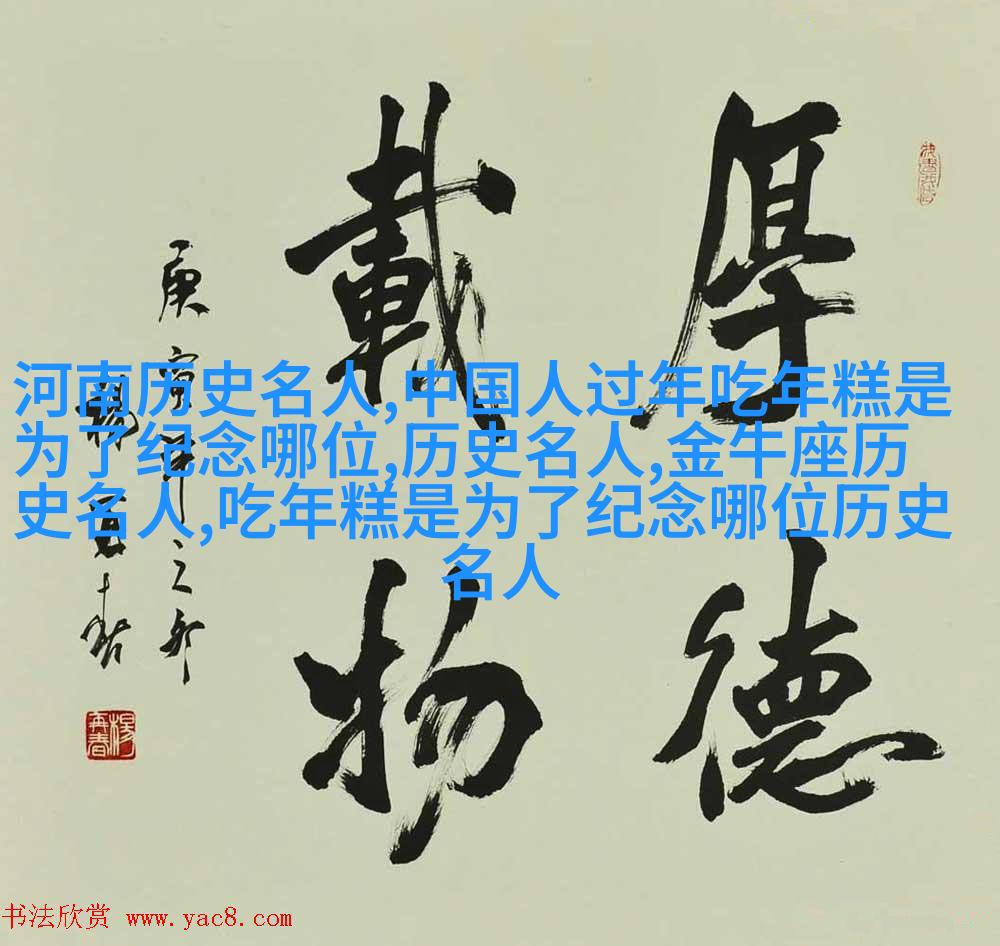 厚德
載物
庚寅年之卯
楊再春
楊再春
河南历史名人,中国人过年吃年糕是
为了纪念哪位,历史名人,金牛座历
史名人,吃年糕是为了纪念哪位历史
名人
书法欣赏 www.yac8.com